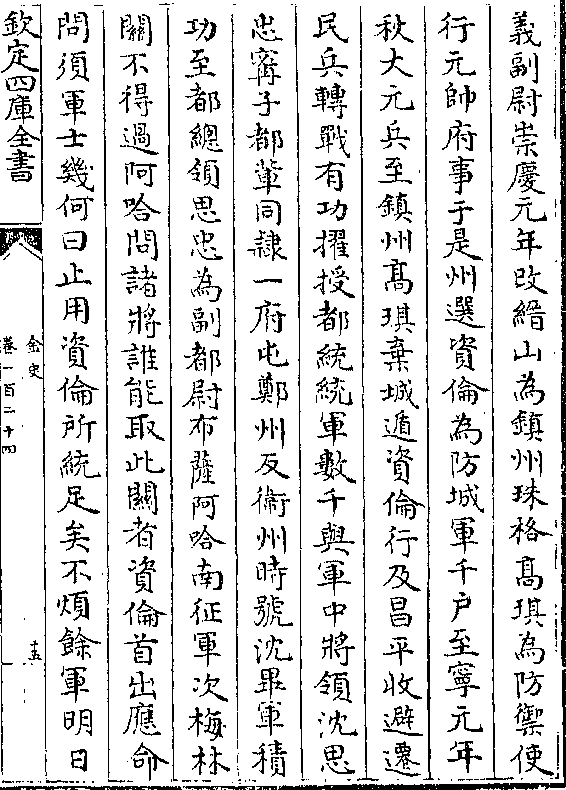 義副尉崇慶元年改縉山為鎮州珠格髙琪為防禦使
行元帥府事于是州選資倫為防城軍千户至寧元年
秋大元兵至鎮州髙琪棄城遁資倫行及昌平收避遷
民兵轉戰有功擢授都統統軍數千與軍中將領沈思
忠寗子都輩同隸一府屯鄭州及衛州時號沈畢軍積
功至都總領思忠為副都尉布薩阿哈南征軍次梅林
關不得過阿哈問諸將誰能取此關者資倫首出應命
問須軍士幾何曰止用資倫所統足矣不煩餘軍明日
欽定四庫全書
金史
卷一百二十四
十五